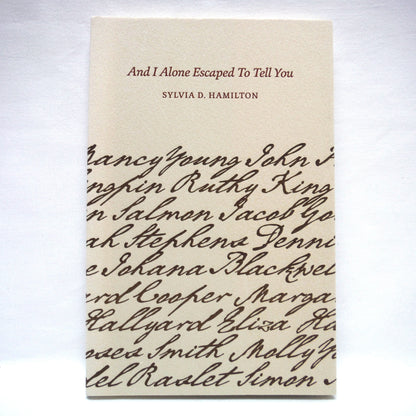 And I Alone Escaped To Tell You
SYLVIA D. HAMILTON
Nancy Young John
Ruthy King
Salmon Jacob
Stephens
Johana Blackwel
Cooper
Hallyard Eliza
Smith Molly
Raslet Simon